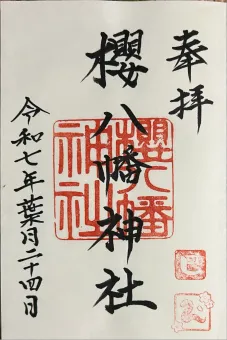 奉拝
櫻八幡神社
櫻八幡神社
令和七年葉月二十四日